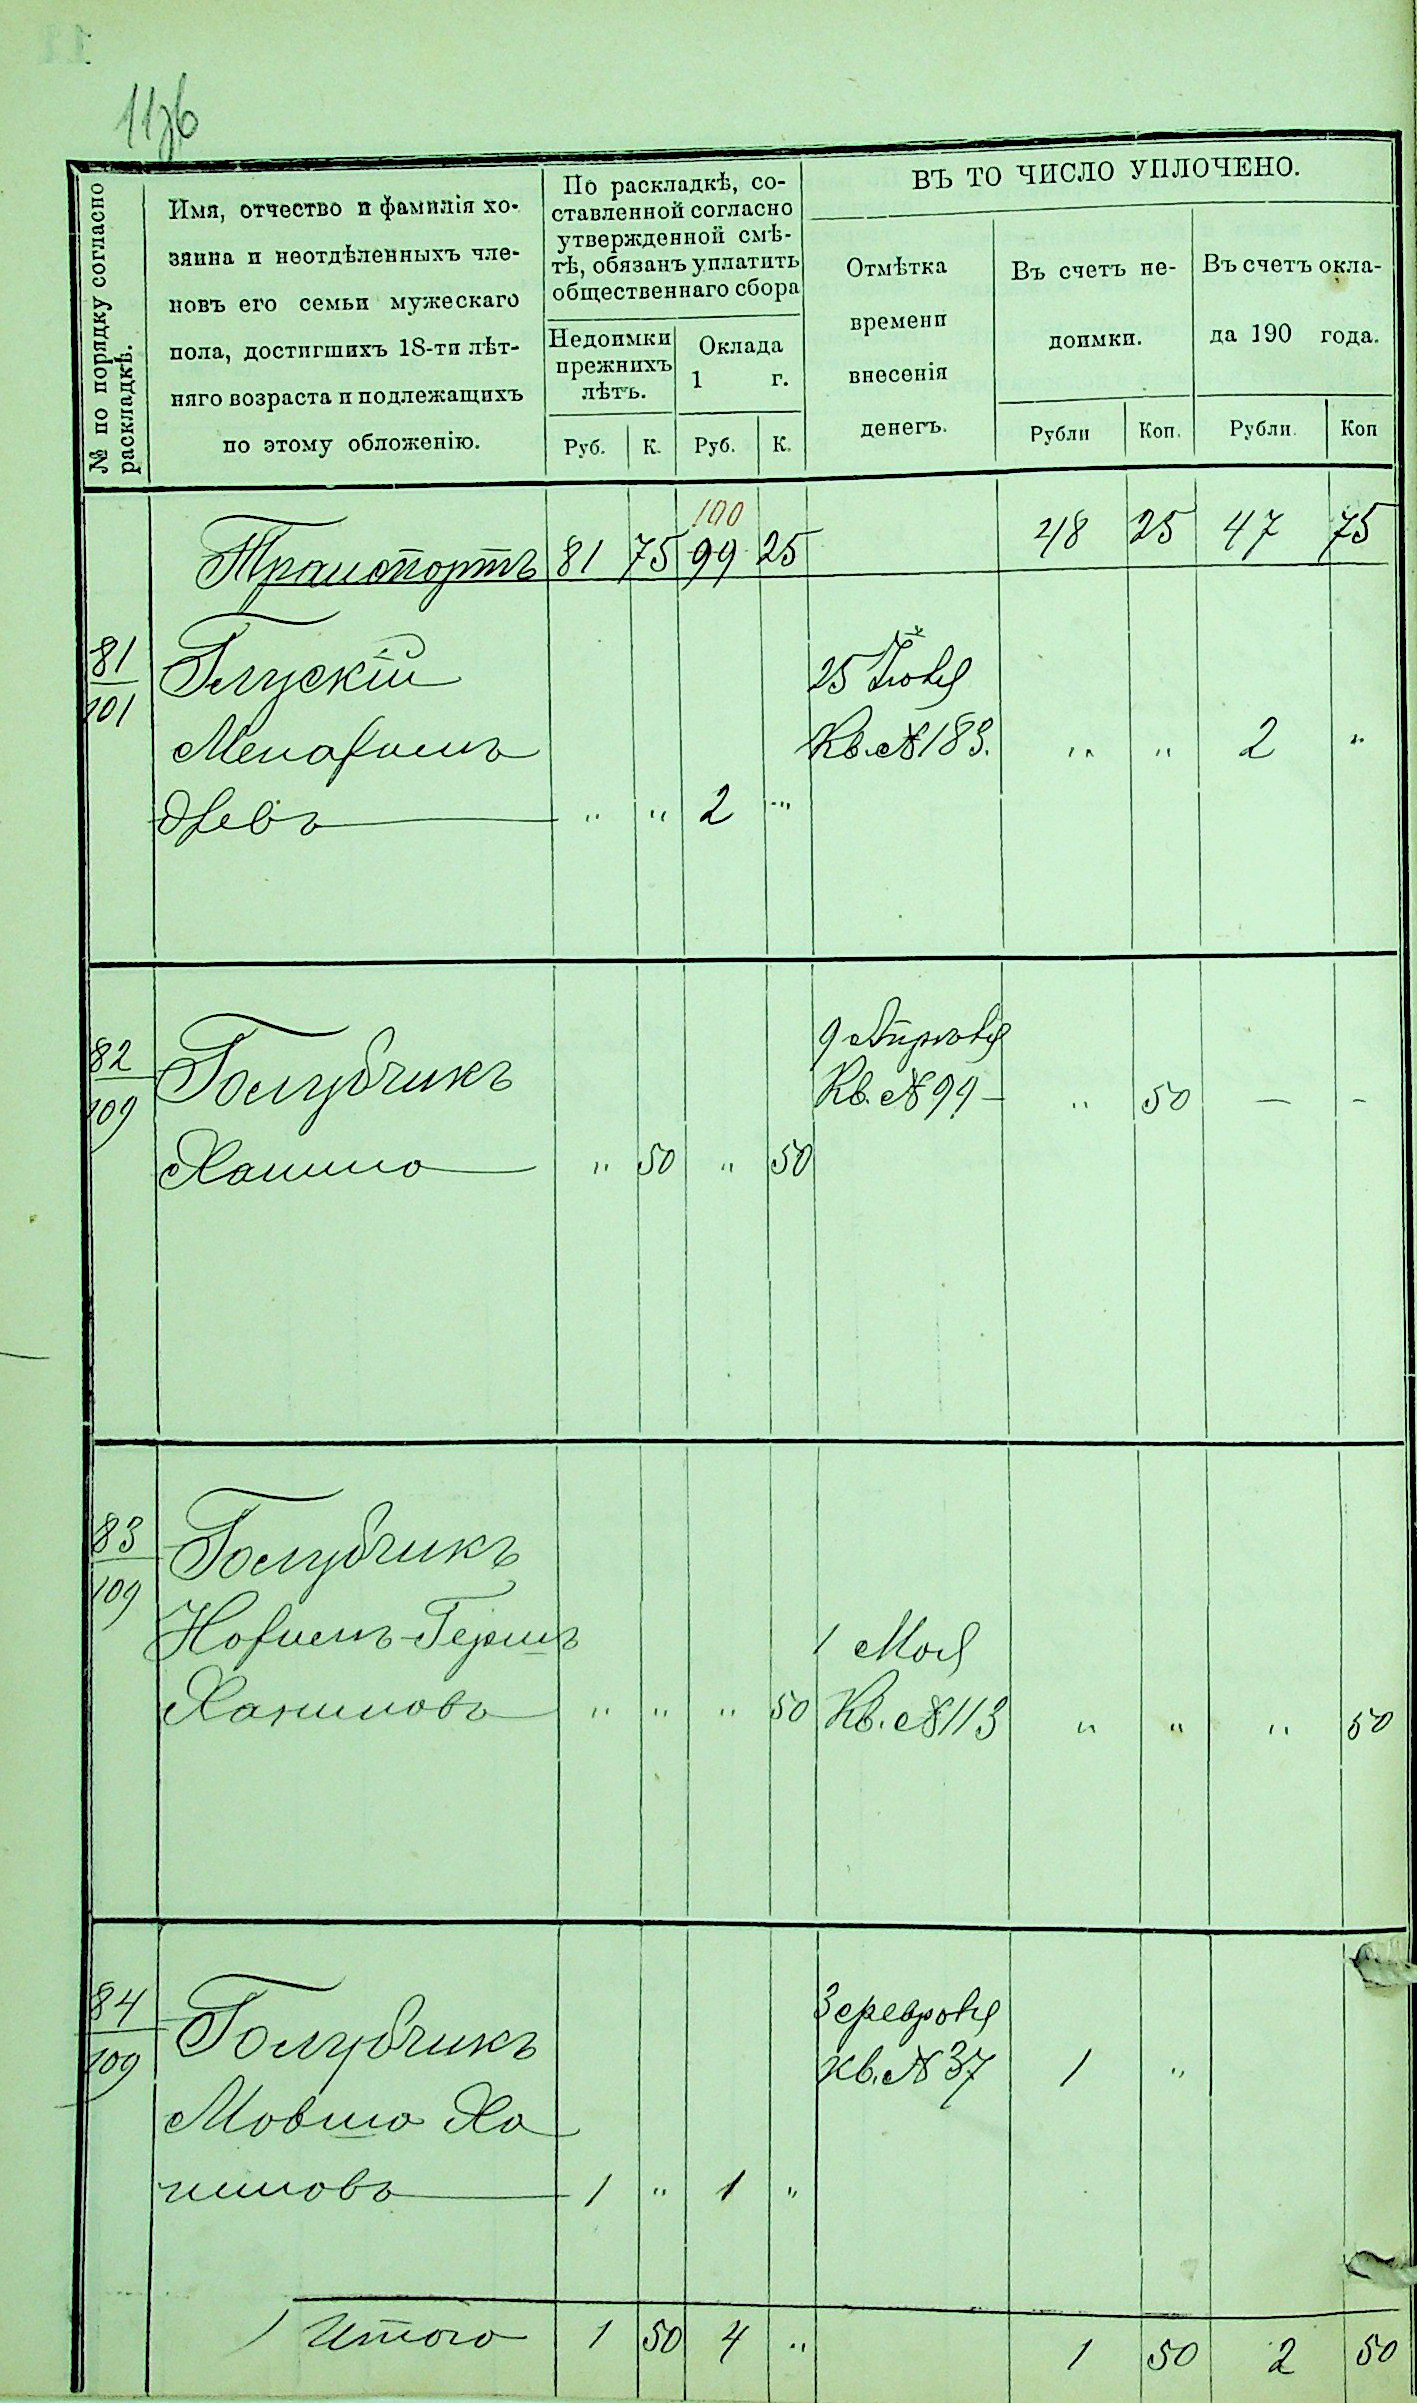 11об
№ по порядку согласно раскладкѣ.
Имя, отчество и фамилія хо-
зяина и неотдѣленныхъ чле-
новъ его семьи мужескаго
пола, достигшихъ 18-ти лѣт-
няго возраста и подлежащихъ
по этому обложенію.
По раскладкѣ, со-
ставленной согласно
утвержденной смѣ-
тѣ, обязанъ уплатить
общественнаго сбора
Недоимки
прежнихъ
лѣтъ.
Оклада
1 г.
Руб. К. Руб. К.
ВЪ ТО ЧИСЛО УПЛОЧЕНО.
Отмѣтка
времени
внесенія
денегъ.
Въ счетъ не-
доимки.
Въ счетъ окла-
да 190 года.
Рубли Коп. Рубли. Коп
100
Транспортъ 81 75 99 25 48 25 47 75
81
101
Глускій
25 Іюня
Менахимъ
Кв. № 183. " " 2 "
" " 2 "
82
109
Голубчикъ
9 Апрѣля
Кв. № 99 – " 50 — –
Хаимъ " 50 " 50
83
109
Голубчикъ
Нохимъ-Гершъ
1 Мая
Хаимовъ " " " 50
Кв. № 113 " " " 50
84
109
Голубчикъ
3 февраля
Кв. № 37 1 "
Мовша Ха
имовъ 1 " 1 "
Итого 1 50 4 " 1 50 2 50